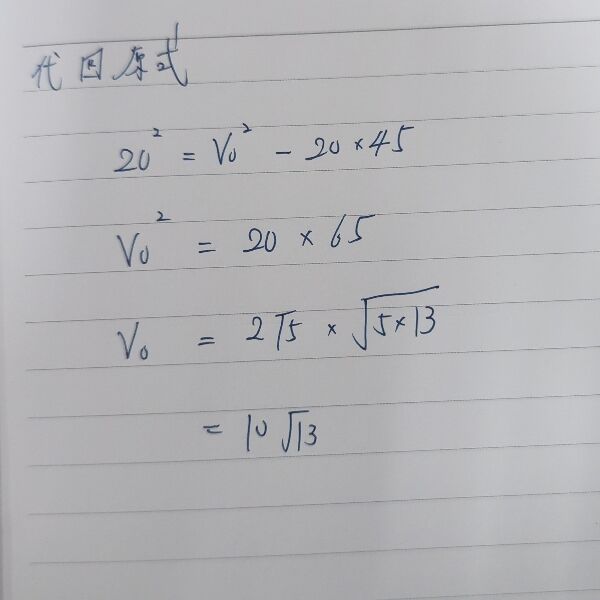 代回原式
20² = V₀² - 20 × 45
V₀² = 20 × 65
V₀ = 2√5 × √5×13
= 10√13